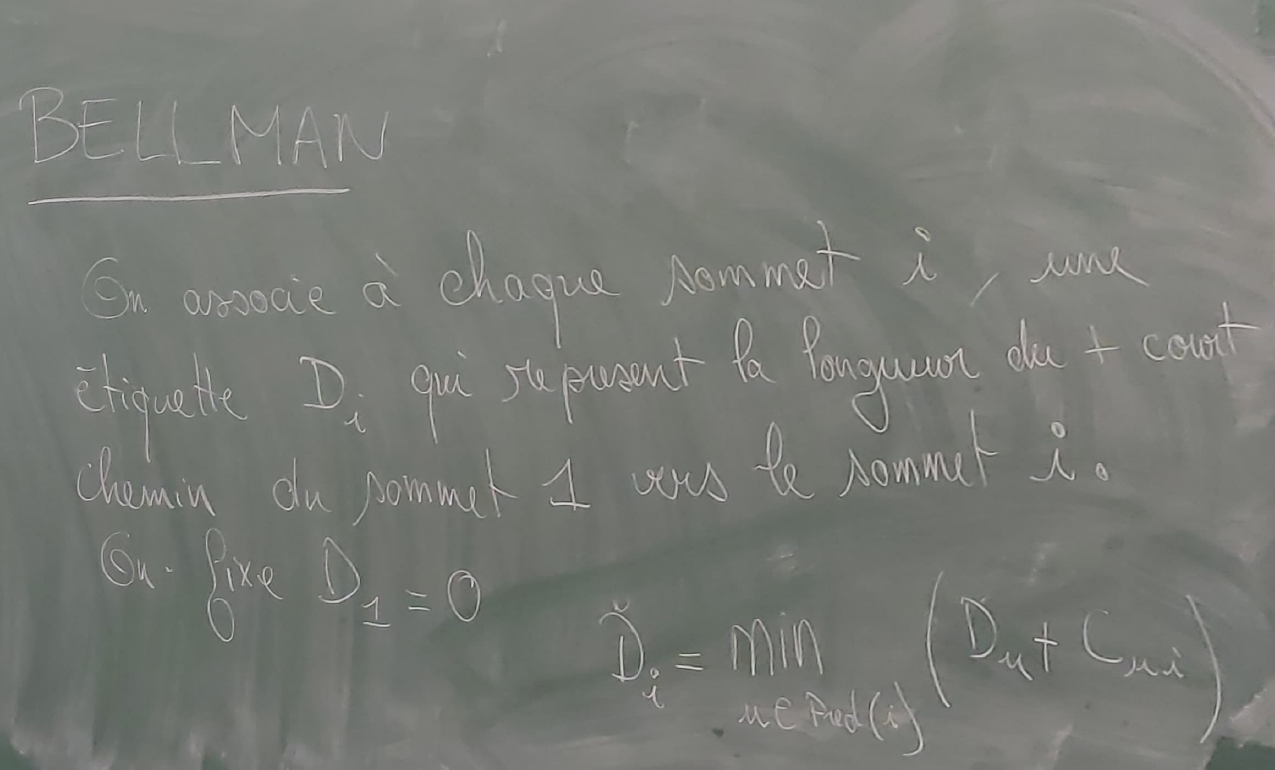 BELLMAN
On associe à chaque sommet i, une
étiquette Di qui represent la longueur du + court
chemin du sommet 1 vers le sommet i.
On fixe D1 = 0
Di = min (Du + Cui)
u ∈ Pred(i)